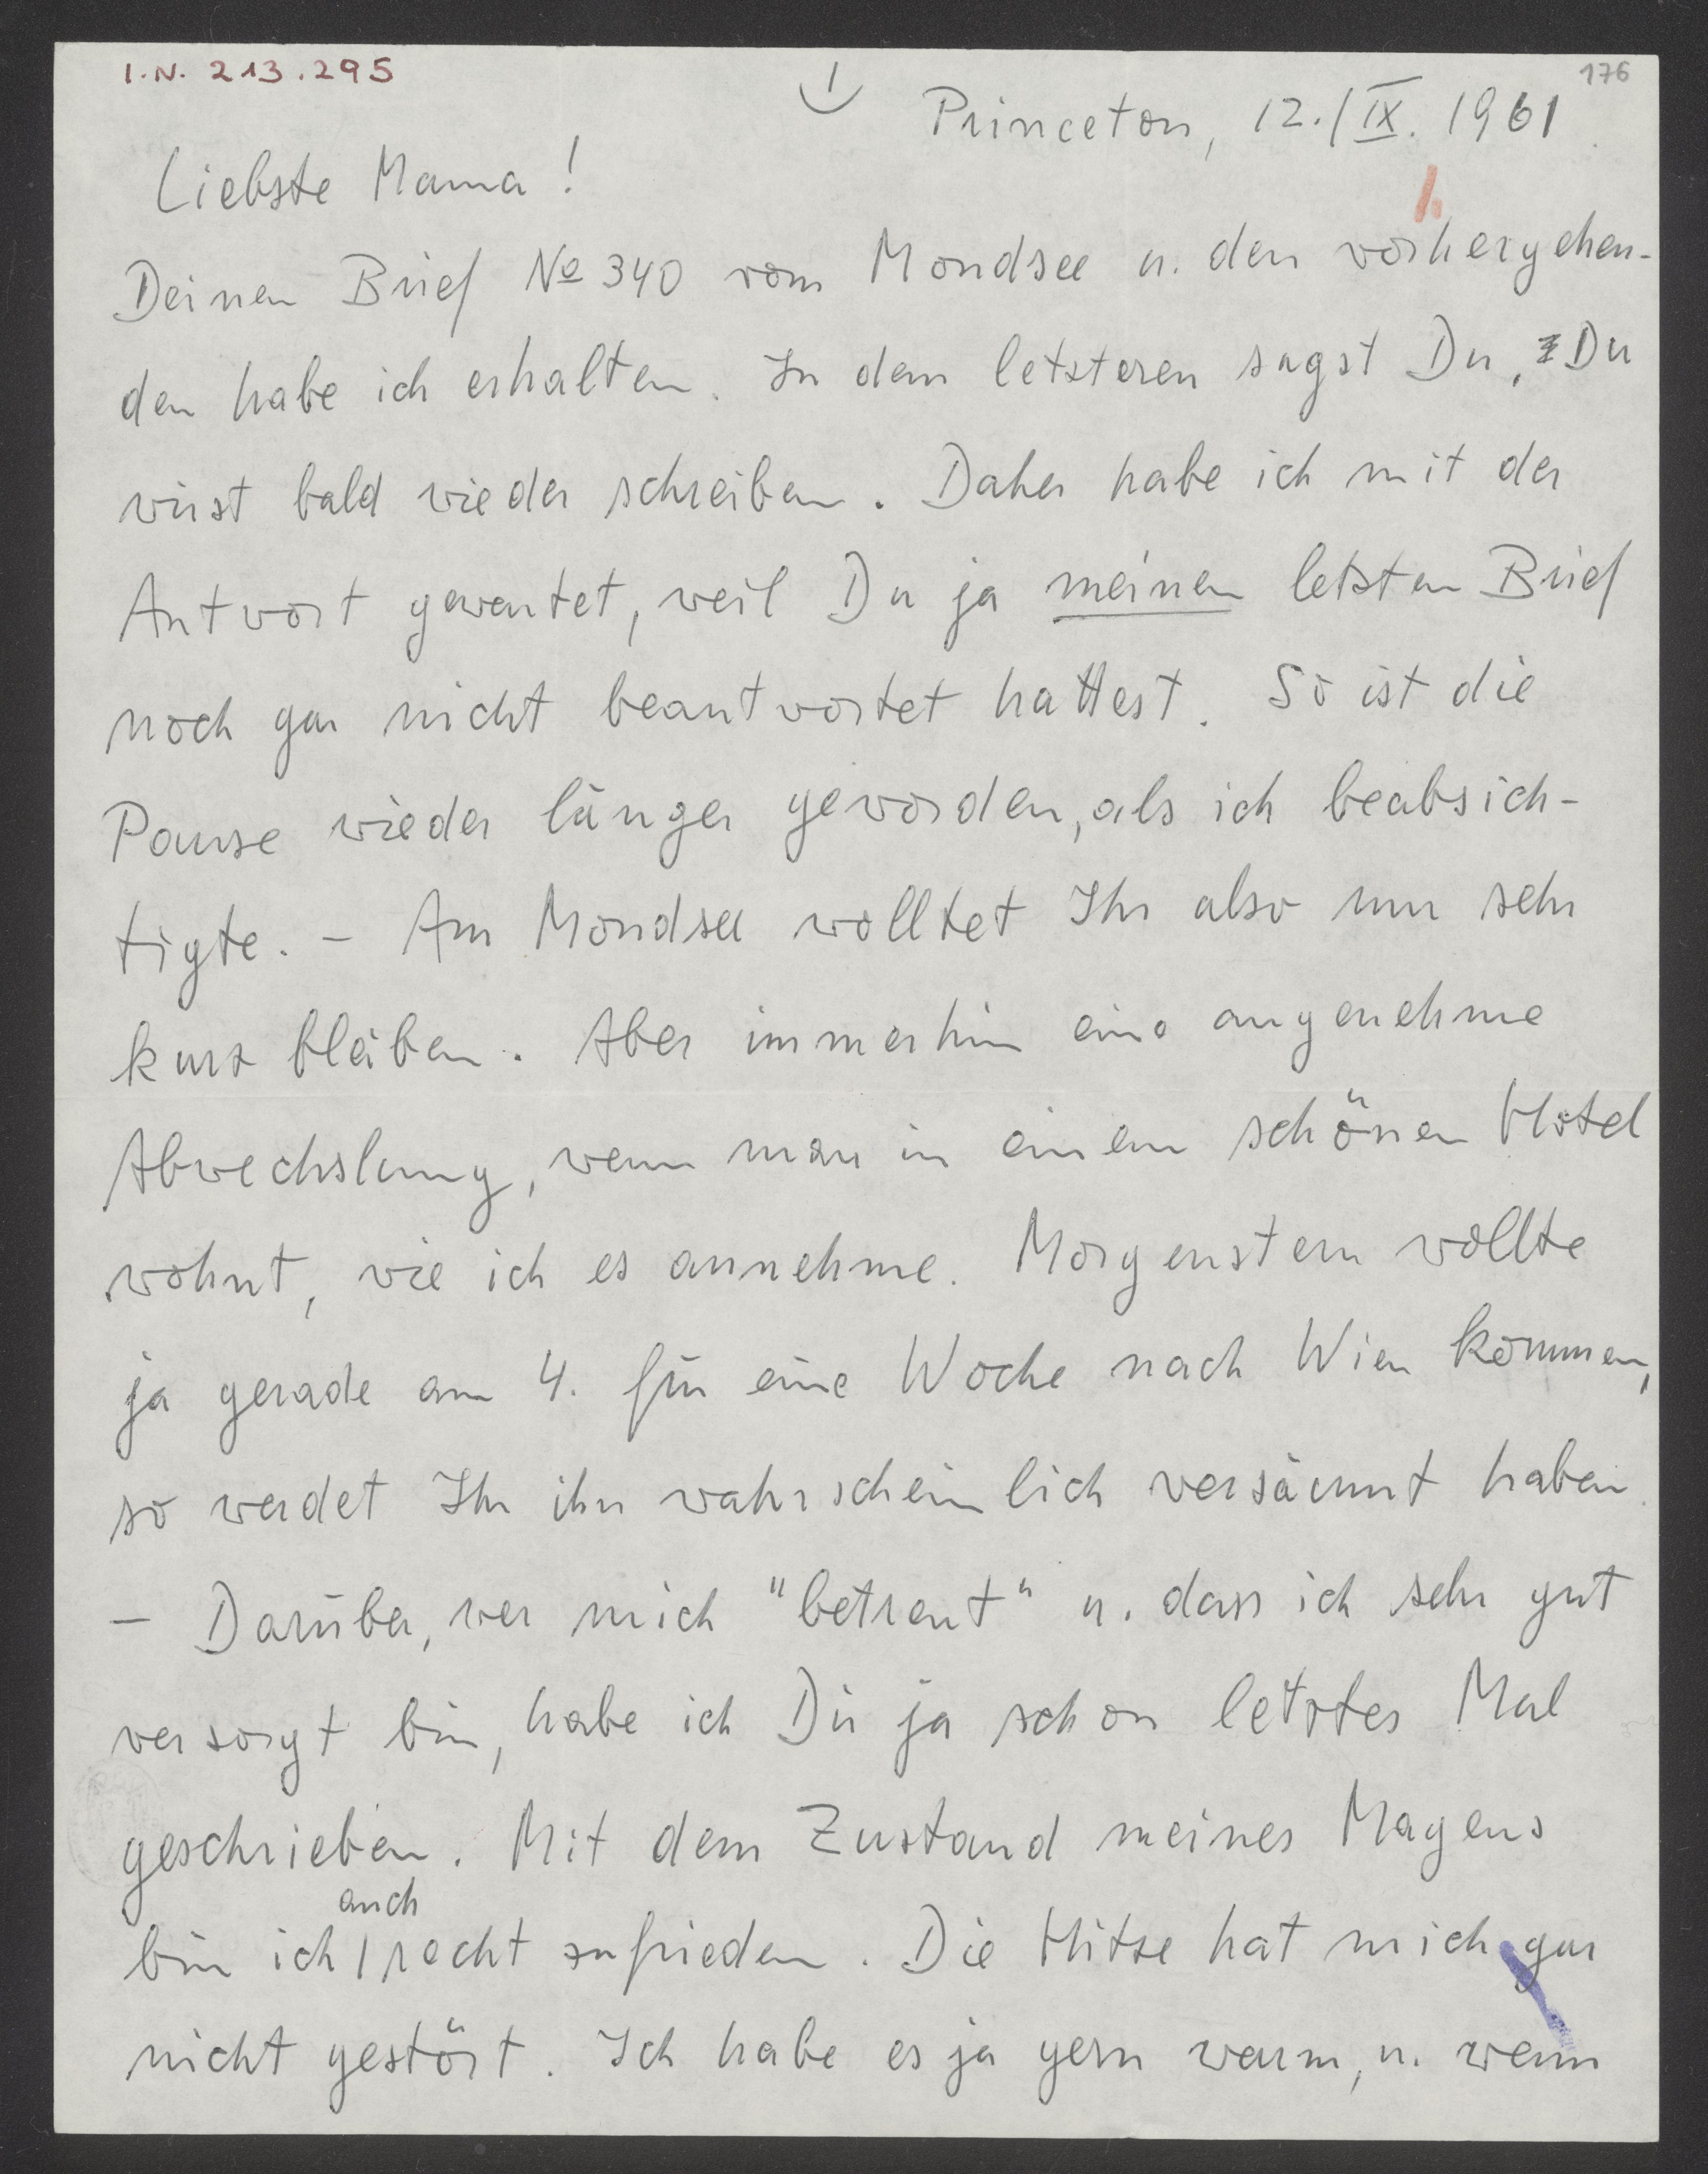 I.N. 213.295
176
1
Princeton, 12./IX. 1961
Liebste Mama!
Deinen Brief No 340 vom Mondsee u. den vorhergehen-
den habe ich erhalten. In dem letzteren sagst Du, Du
wirst bald wieder schreiben. Daher habe ich mit der
Antwort gewartet, weil Du ja meinen letzten Brief
noch gar nicht beantwortet hattest. So ist die
Pause wieder länger geworden, als ich beabsich-
tigte. – Am Mondsee wolltet Ihr also nur sehr
kurz bleiben. Aber immerhin eine angenehme
Abwechslung, wenn man in einem schönen Hotel
wohnt, wie ich es annehme. Morgenstern wollte
ja gerade am 4. für eine Woche nach Wien kommen,
so werdet Ihr ihn wahrscheinlich versäumt haben.
– Darüber, wer mich "betreut" u. dass ich sehr gut
versorgt bin, habe ich Dir ja schon letztes Mal
geschrieben. Mit dem Zustand meines Magens
auch
bin ich recht zufrieden. Die Hitze hat mich gar
nicht gestört. Ich habe es ja gern warm, u. wenn